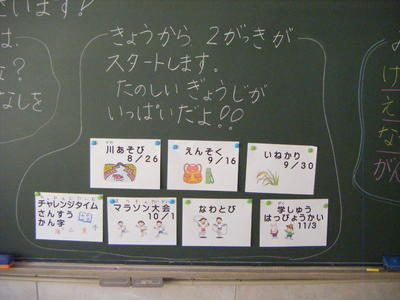 います!
きょうから 2がっきが
スタートします。
たのしい ぎょうじが
いっぱいだよ!!
は、
な?
なしを
み
け
え
な
がん
川あそび
8/26
えんそく
9/16
いねかり
9/30
チャレンジタイム
さんすう
かん字
マラソン大会
10/1
なわとび
学しゅう
はっぴょうかい
11/3